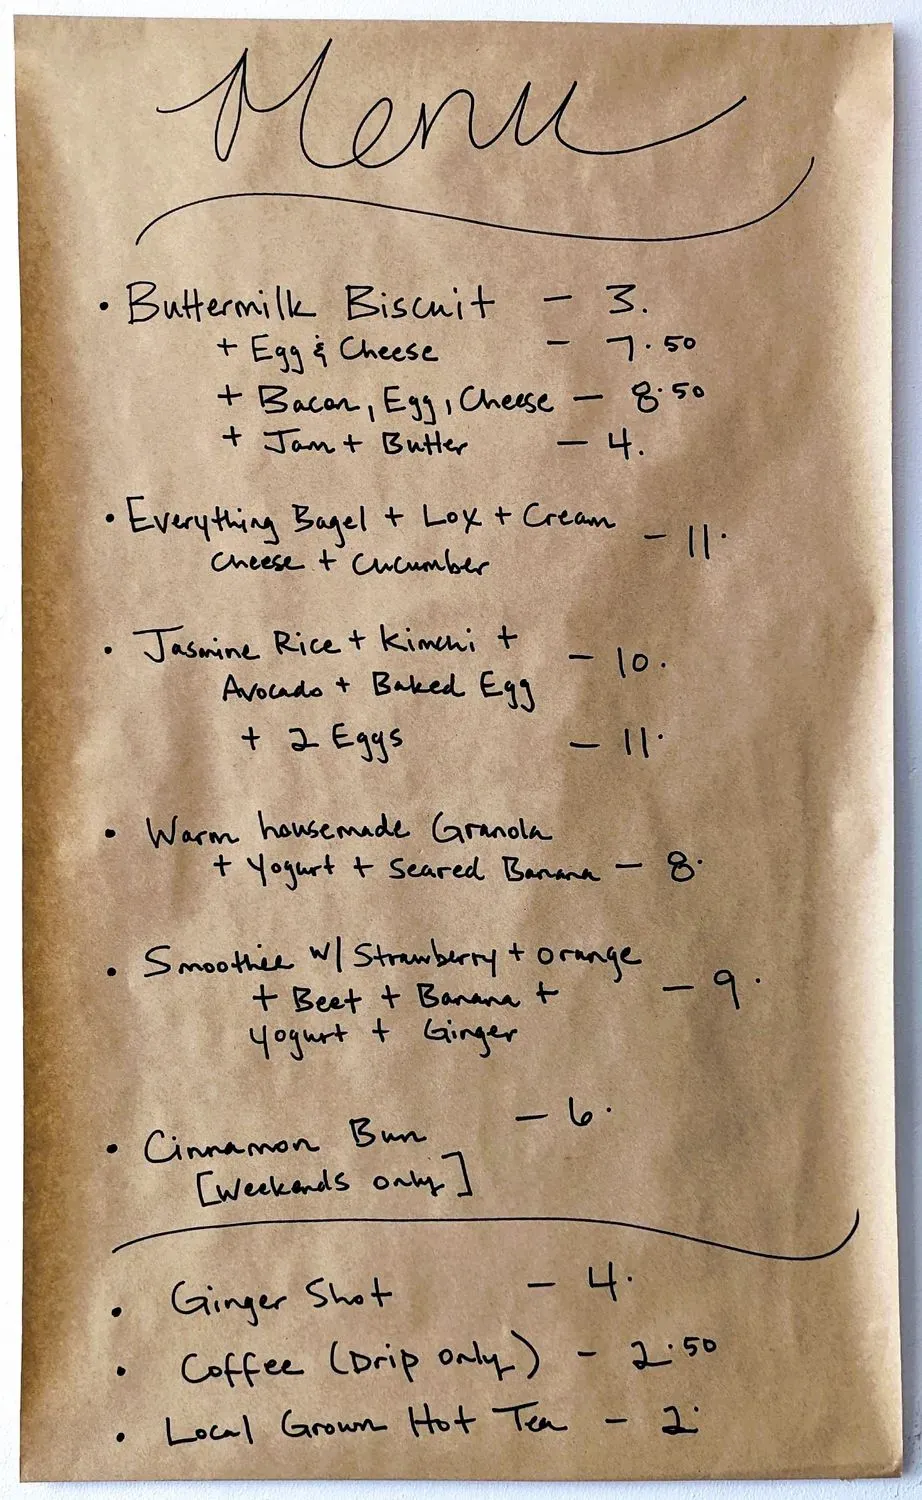 Menu
• Buttermilk Biscuit — 3.
+ Egg & Cheese — 7.50
+ Bacon, Egg, Cheese — 8.50
+ Jam + Butter — 4.
• Everything Bagel + Lox + Cream
Cheese + Cucumber — 11.
• Jasmine Rice + Kimchi +
Avocado + Baked Egg — 10.
+ 2 Eggs — 11.
• Warm housemade Granola
+ Yogurt + Seared Banana — 8.
• Smoothie w/ Strawberry + Orange
+ Beet + Banana + — 9.
Yogurt + Ginger
• Cinnamon Bun — 6.
[Weekends only]
• Ginger Shot — 4.
• Coffee (Drip only) — 2.50
• Local Grown Hot Tea — 2.